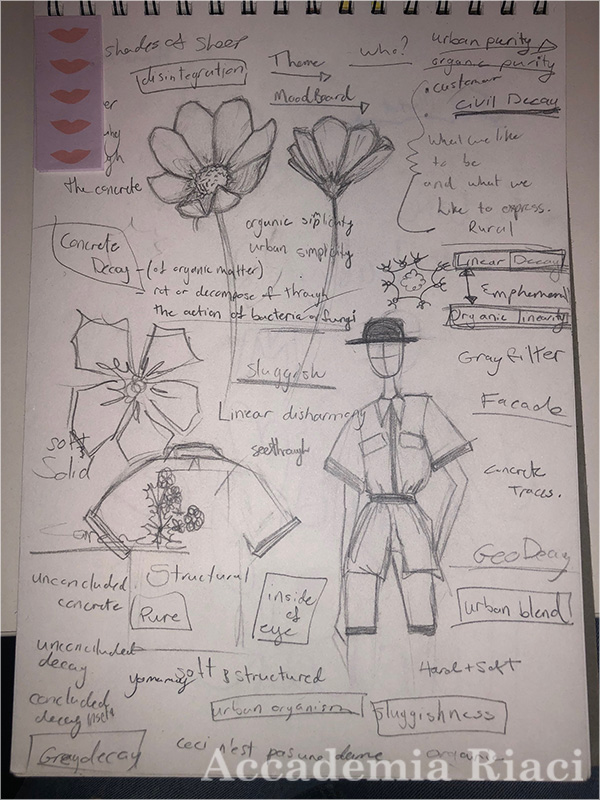 shades of sheer
disintegration
Theme
Moodboard
who?
urban purity
organic purity
customer
Civil Decay
What we like
to be
and what we
like to express.
Rural
the concrete
organic simplicity
urban simplicity
Concrete
Decay - (of organic matter)
- rot or decompose of through
the action of bacteria or fungi
Linear Decay
Emphemeral
Organic linearity
Gray filter
Sluggish
Facade
Linear disharmony
seethrough
soft
Solid
Concrete
Traces.
GeoDecay
urban blend
unconcluded
concrete
Structural
Pure
inside
of
eye
unconcluded
decay
soft & structured
Hard + Soft
concluded
decay
urban organism
Sluggishness
Graydecay
ceci n'est pas une
organic
Accademia Riaci